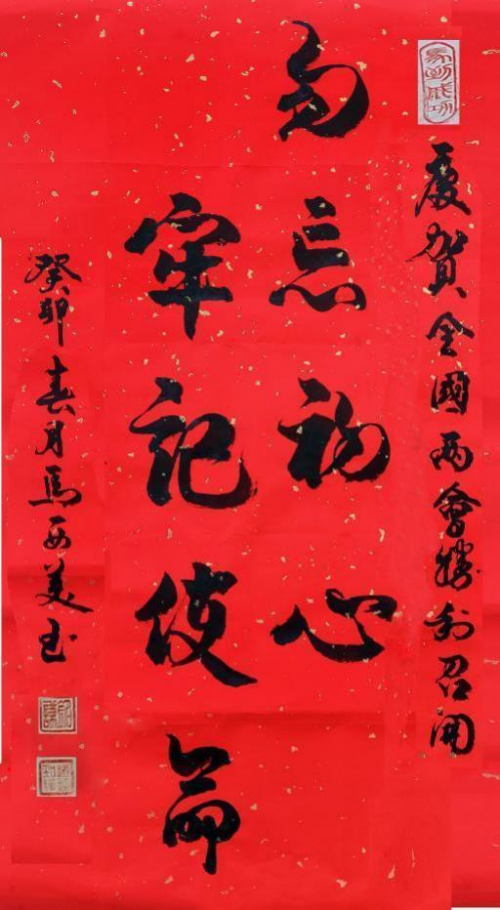 馬到成功
慶賀全國两會勝利召開
勿忘初心
牢記使命
癸卯春月馬西美书